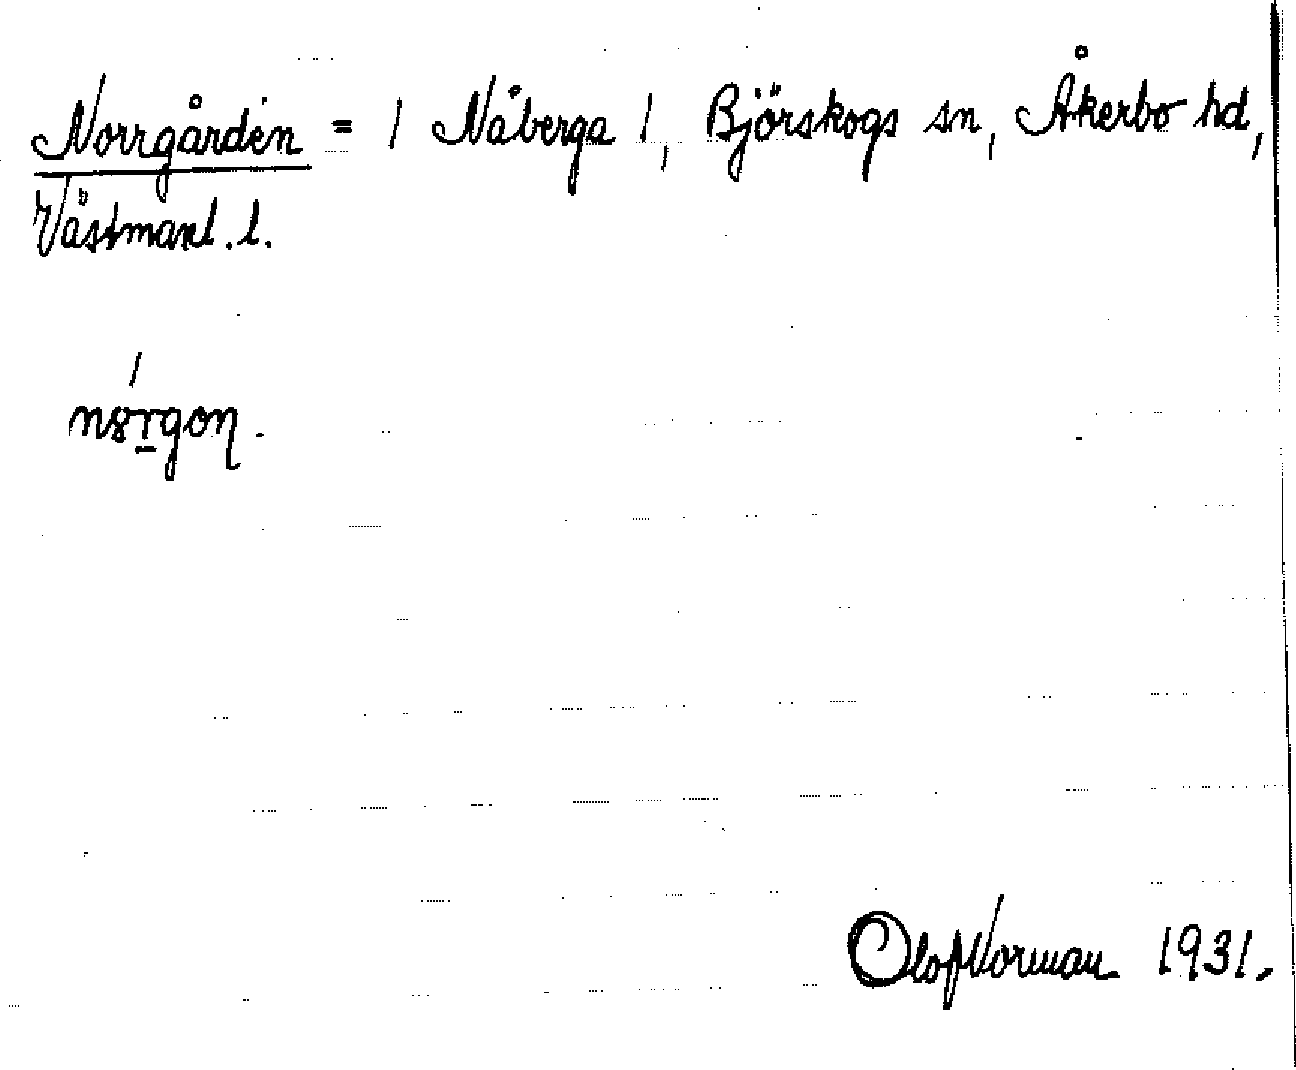 Norrgården = / Nåberga /, Björskogs sn, Åkerbo hd,
Västmanl. l.
Olof Norman 1931.